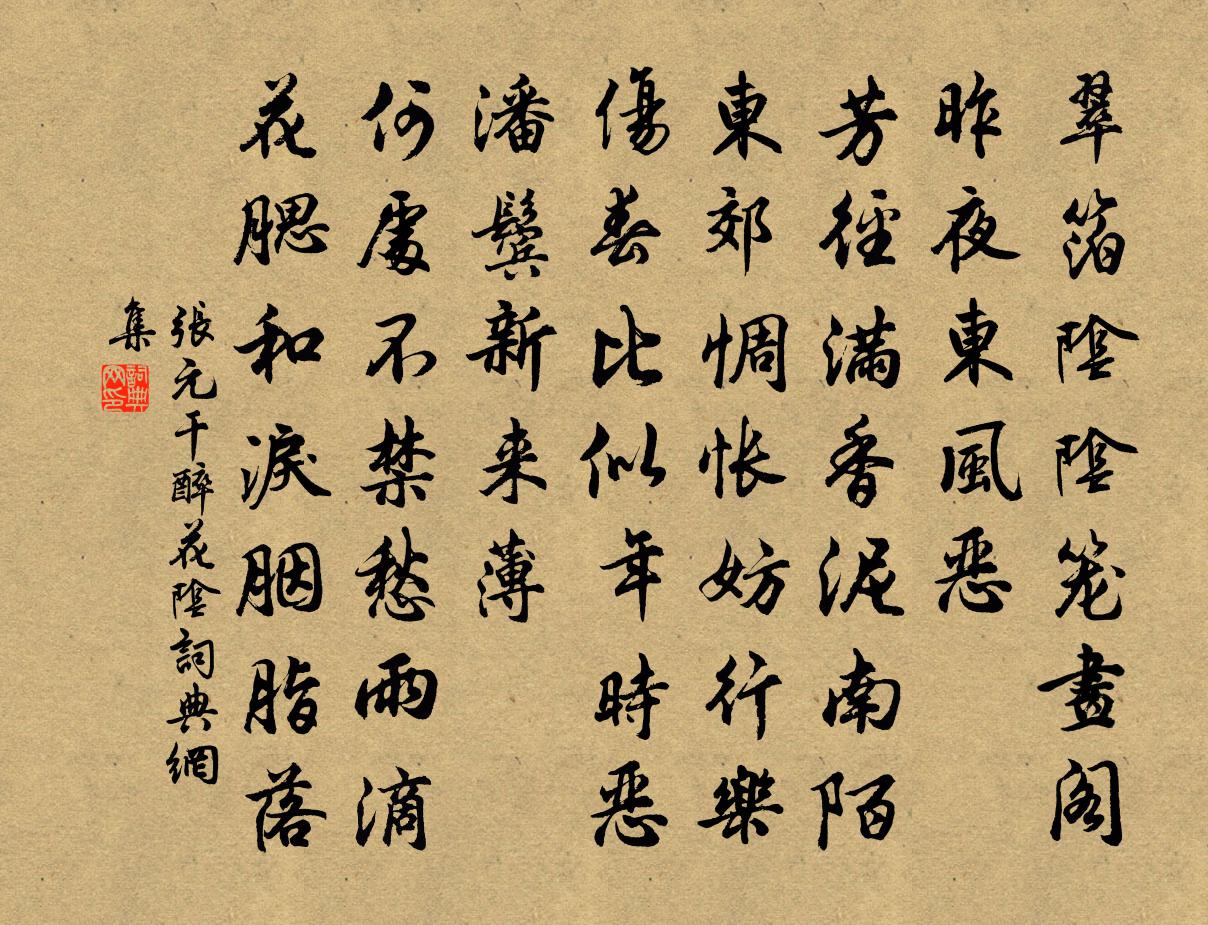 翠箔陰陰笼畫阁
昨夜東風恶
芳徑满香泥南陌
東郊惆怅妨行樂
傷春比似年時恶
潘鬓新来薄
何處不禁愁雨滴
花腮和淚胭脂落
張元干醉花陰詞典網
集
詞典網印